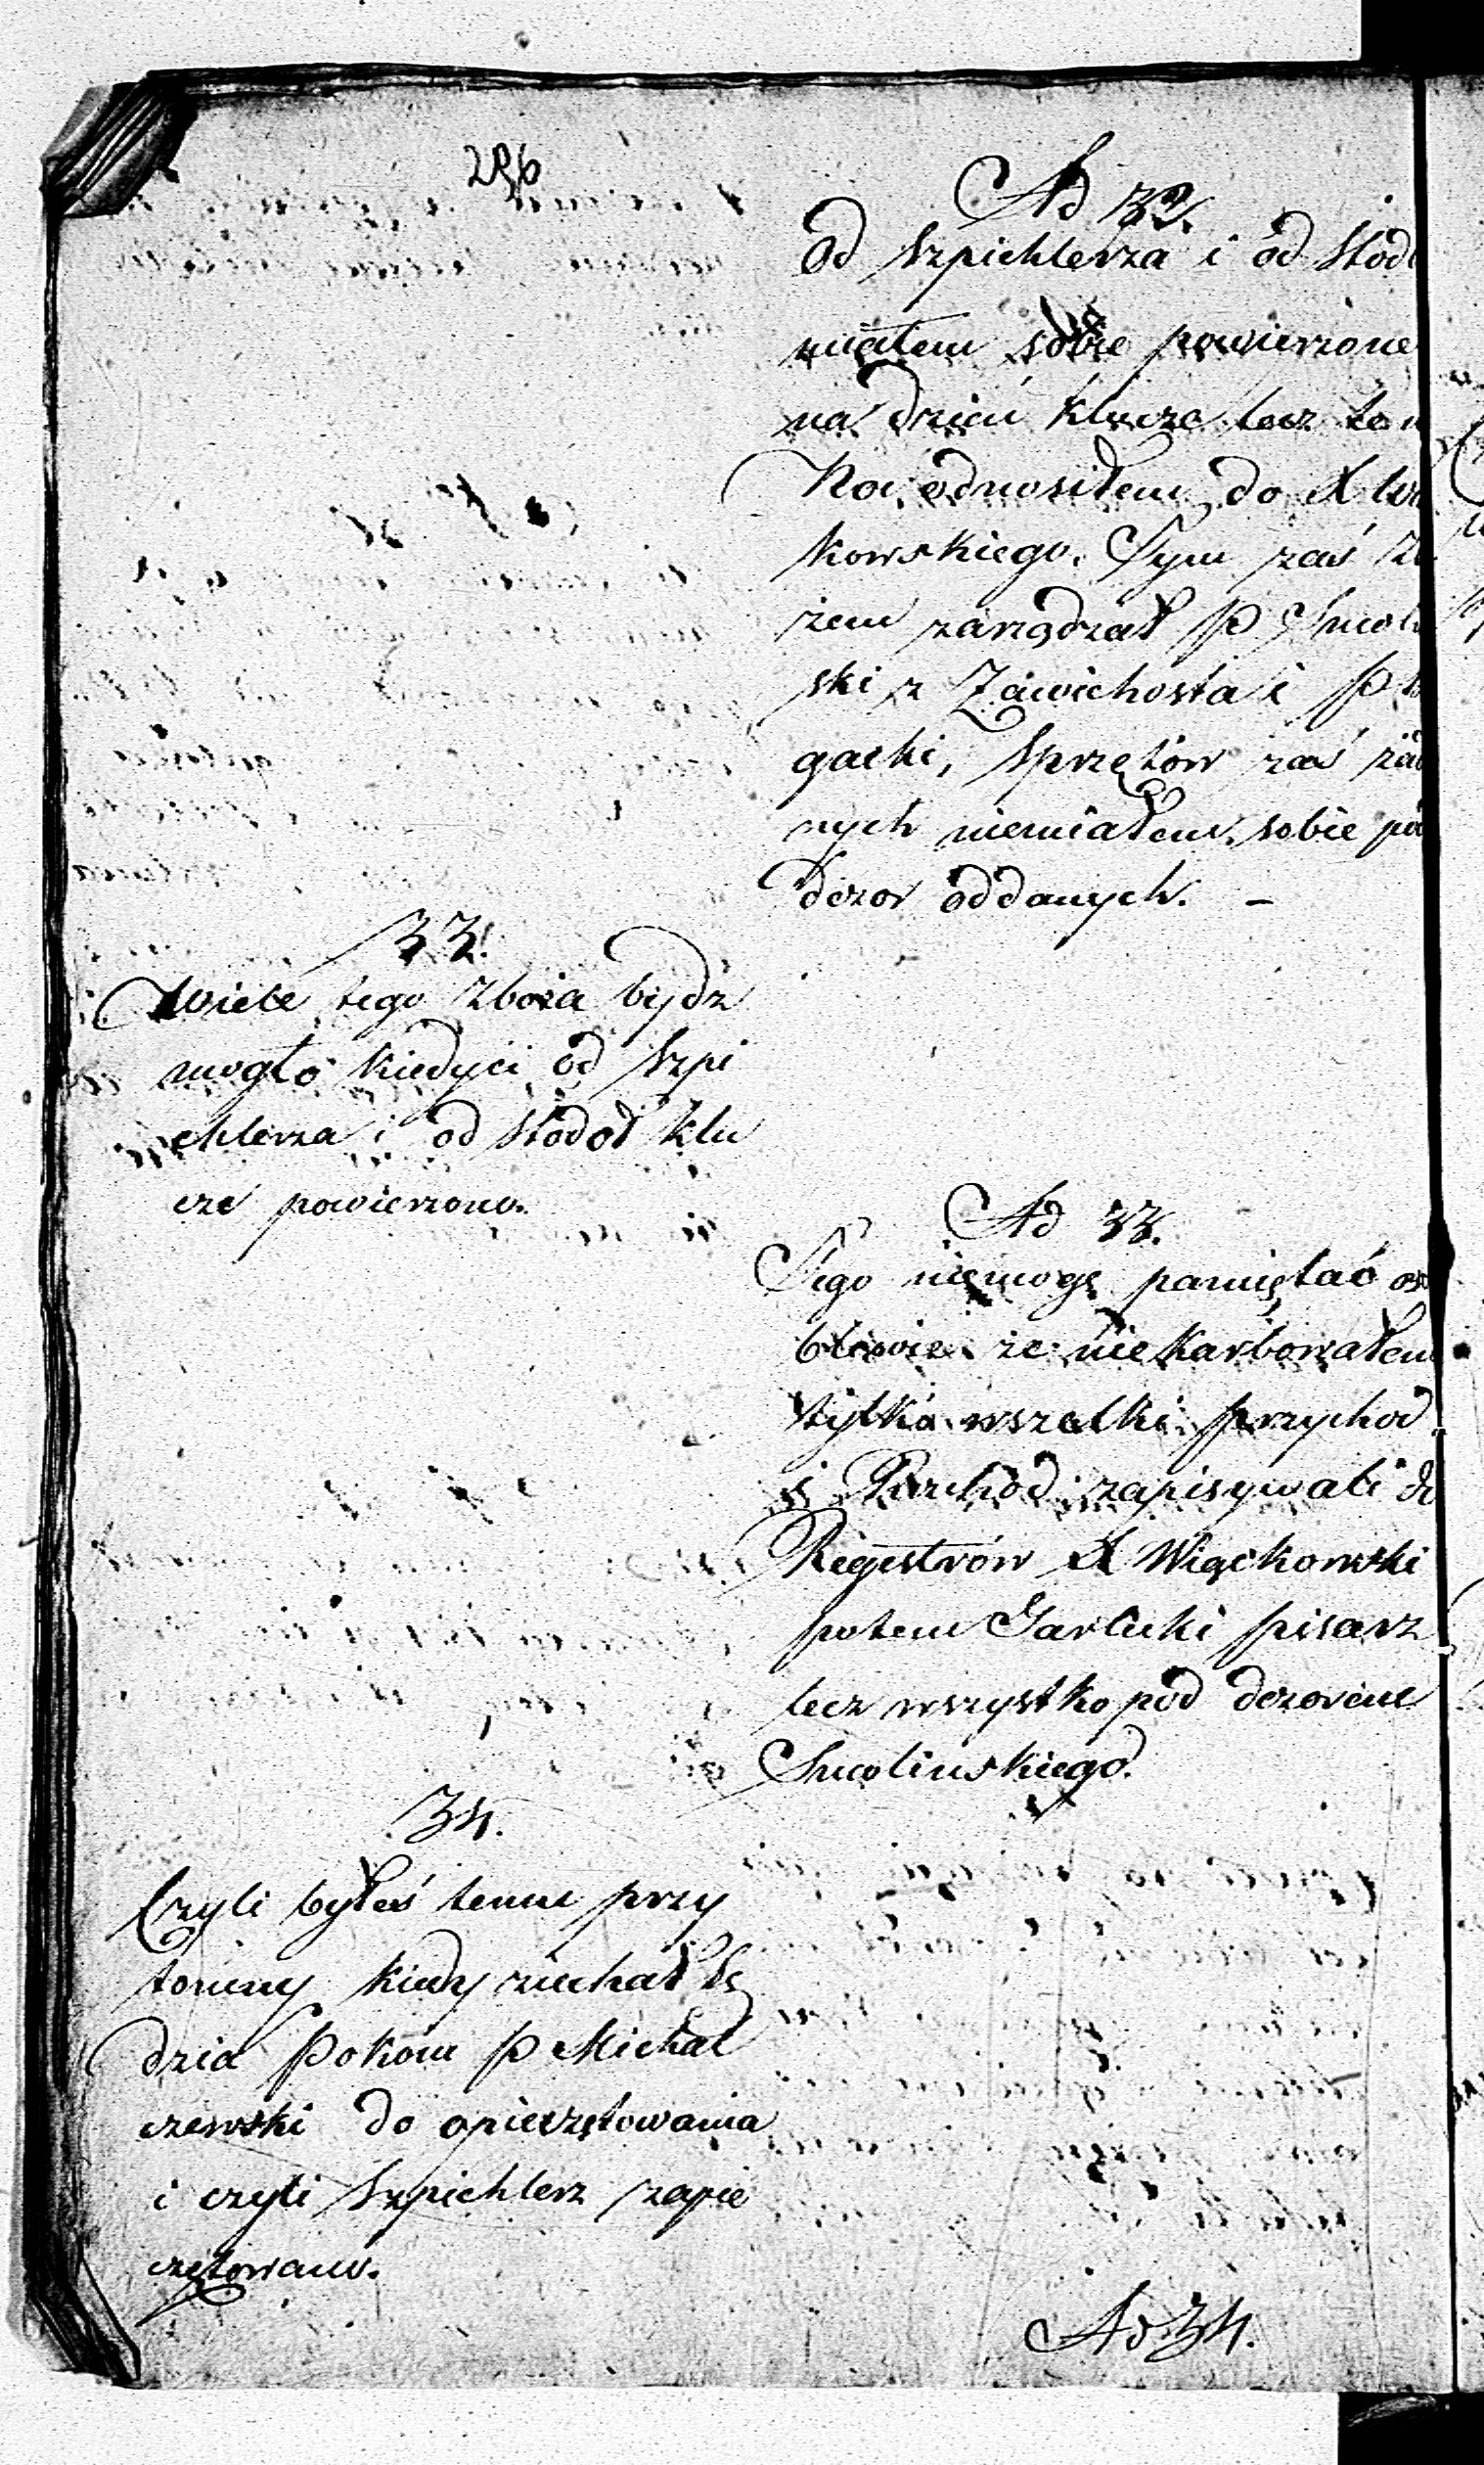 296
Ad 32.
od szpichlerza i od stod
miałem sobie powierzone
na dzień klucze lecz te n
Noc odnosiłem do X
kowskiego. Tym zaś
żem zarządzał P. Smol
ski z Zawichosta i P
gacki, sprzętów zaś żad
nych niemiałem sobie po
dozor oddanych. –
33.
Wiele tego zboża bydź
mogło kiedyci od szpi
chlerza i od stodoł klu
cze powierzono.
Ad 33.
Tego niemogę pamiętać oso
bliwie że nie karbowałem
tylko wszelki przychod
i Rozchod zapisywali do
Regestrów X Więckowski
potem Garlicki pisarz
lecz wszystko pod dozorem
Smolinskiego.
34.
Czyli byłeś temu przy
tomny kiedy ziechał Sę
dzia Pokoiu P Michał
czewski do opieczętowania
i czyli Szpichlerz zapie
czętowano.
Ad 34.